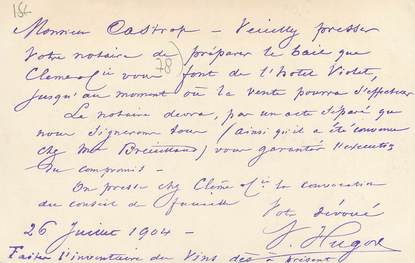 154
Monsieur Castrop - Veuilly presser
Votre notaire de préparer le bail que
78
Clème & Cie vous font de l'hotel Violet,
jusqu'au moment où la vente pourra s'effectuer
Le notaire devra, par un acte séparé que
nous signerons tous (ainsi qu'il a été convenu
chez Me) vous garantir l'exécution
du compromis -
On presse chez Clème & Cie la convocation
du conseil de famille
Votre dévoué
26 Juillet 1904 -
Faites l'inventaire des Vins dès à présent